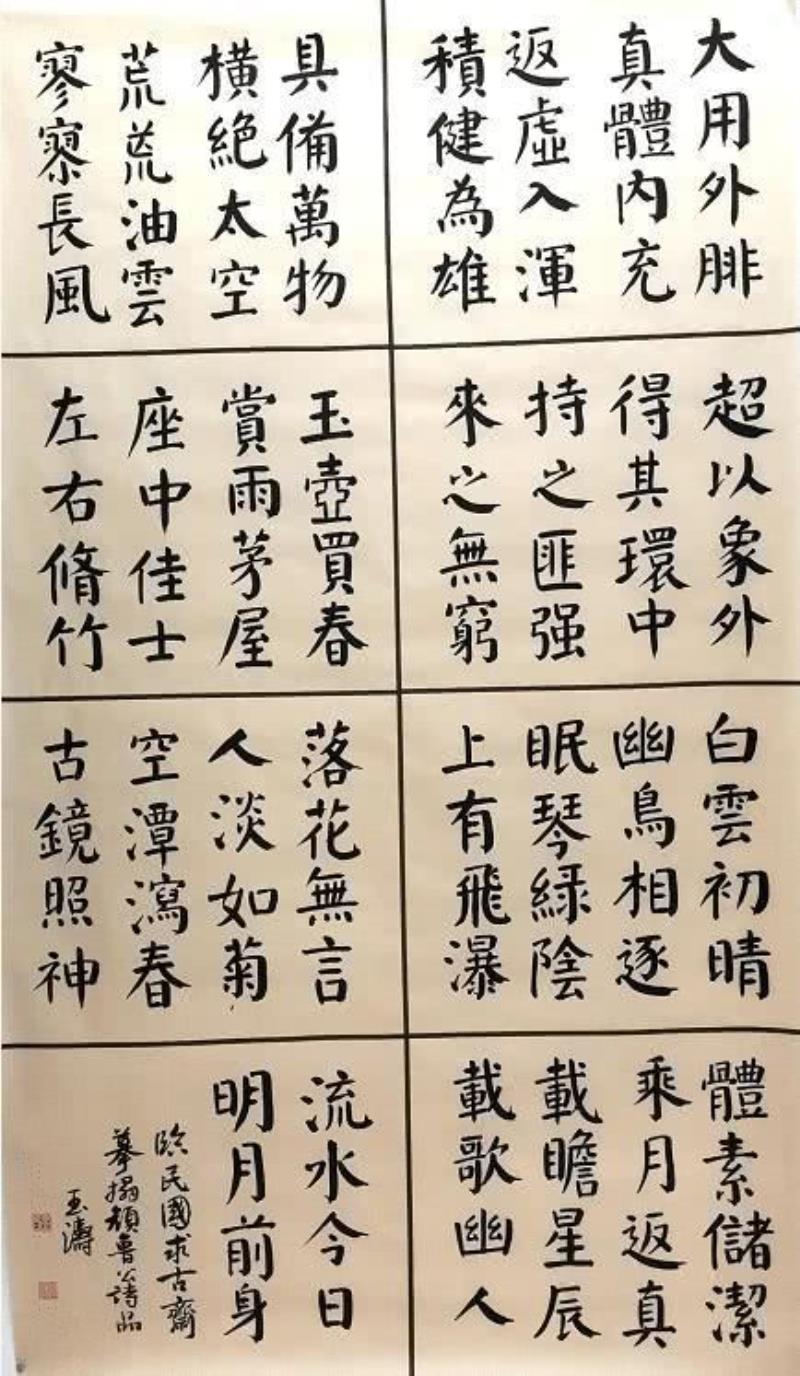 大用外腓
真體内充
返虛入渾
積健為雄
具備萬物
橫絕太空
荒荒油雲
寥寥長風
超以象外
得其環中
持之匪强
來之無窮
玉壺買春
賞雨茅屋
座中佳士
左右脩竹
白雲初晴
幽鳥相逐
眠琴緑陰
上有飛瀑
落花無言
人淡如菊
空潭瀉春
古鏡照神
體素儲潔
乘月返真
載瞻星辰
載歌幽人
流水今日
明月前身
臨民國求古齋
摹搨顏魯公詩品
玉濤